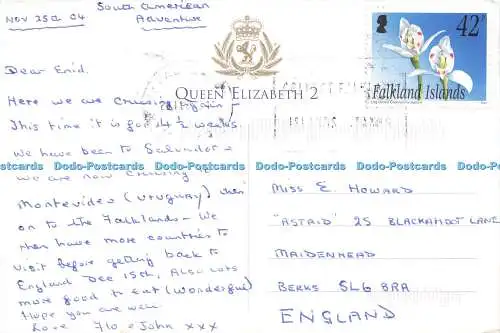 Nov 25th 04
South American
Adventure
Dear Enid,
Here we are Cruising again
This time it is for 4½ weeks
We have been to Salvador &
we are now cruising to
Montevideo (Uruguay) then
on to the Falklands - We
then have more countries to
visit before getting back to
England Dec 15th, Also lots
more good to eat (Wonderful)
Hope you are well
Love Flo + John xxx
QUEEN ELIZABETH 2
42p
Falkland Islands
Dodo-Postcards Dodo-Postcards Dodo-Postcards Dodo-Postcards Dodo-Postcards
MISS E. HOWARD
"ASTRID" 25 BLACKAMOOR LANE
MAIDENHEAD
BERKS SL6 8RA
ENGLAND